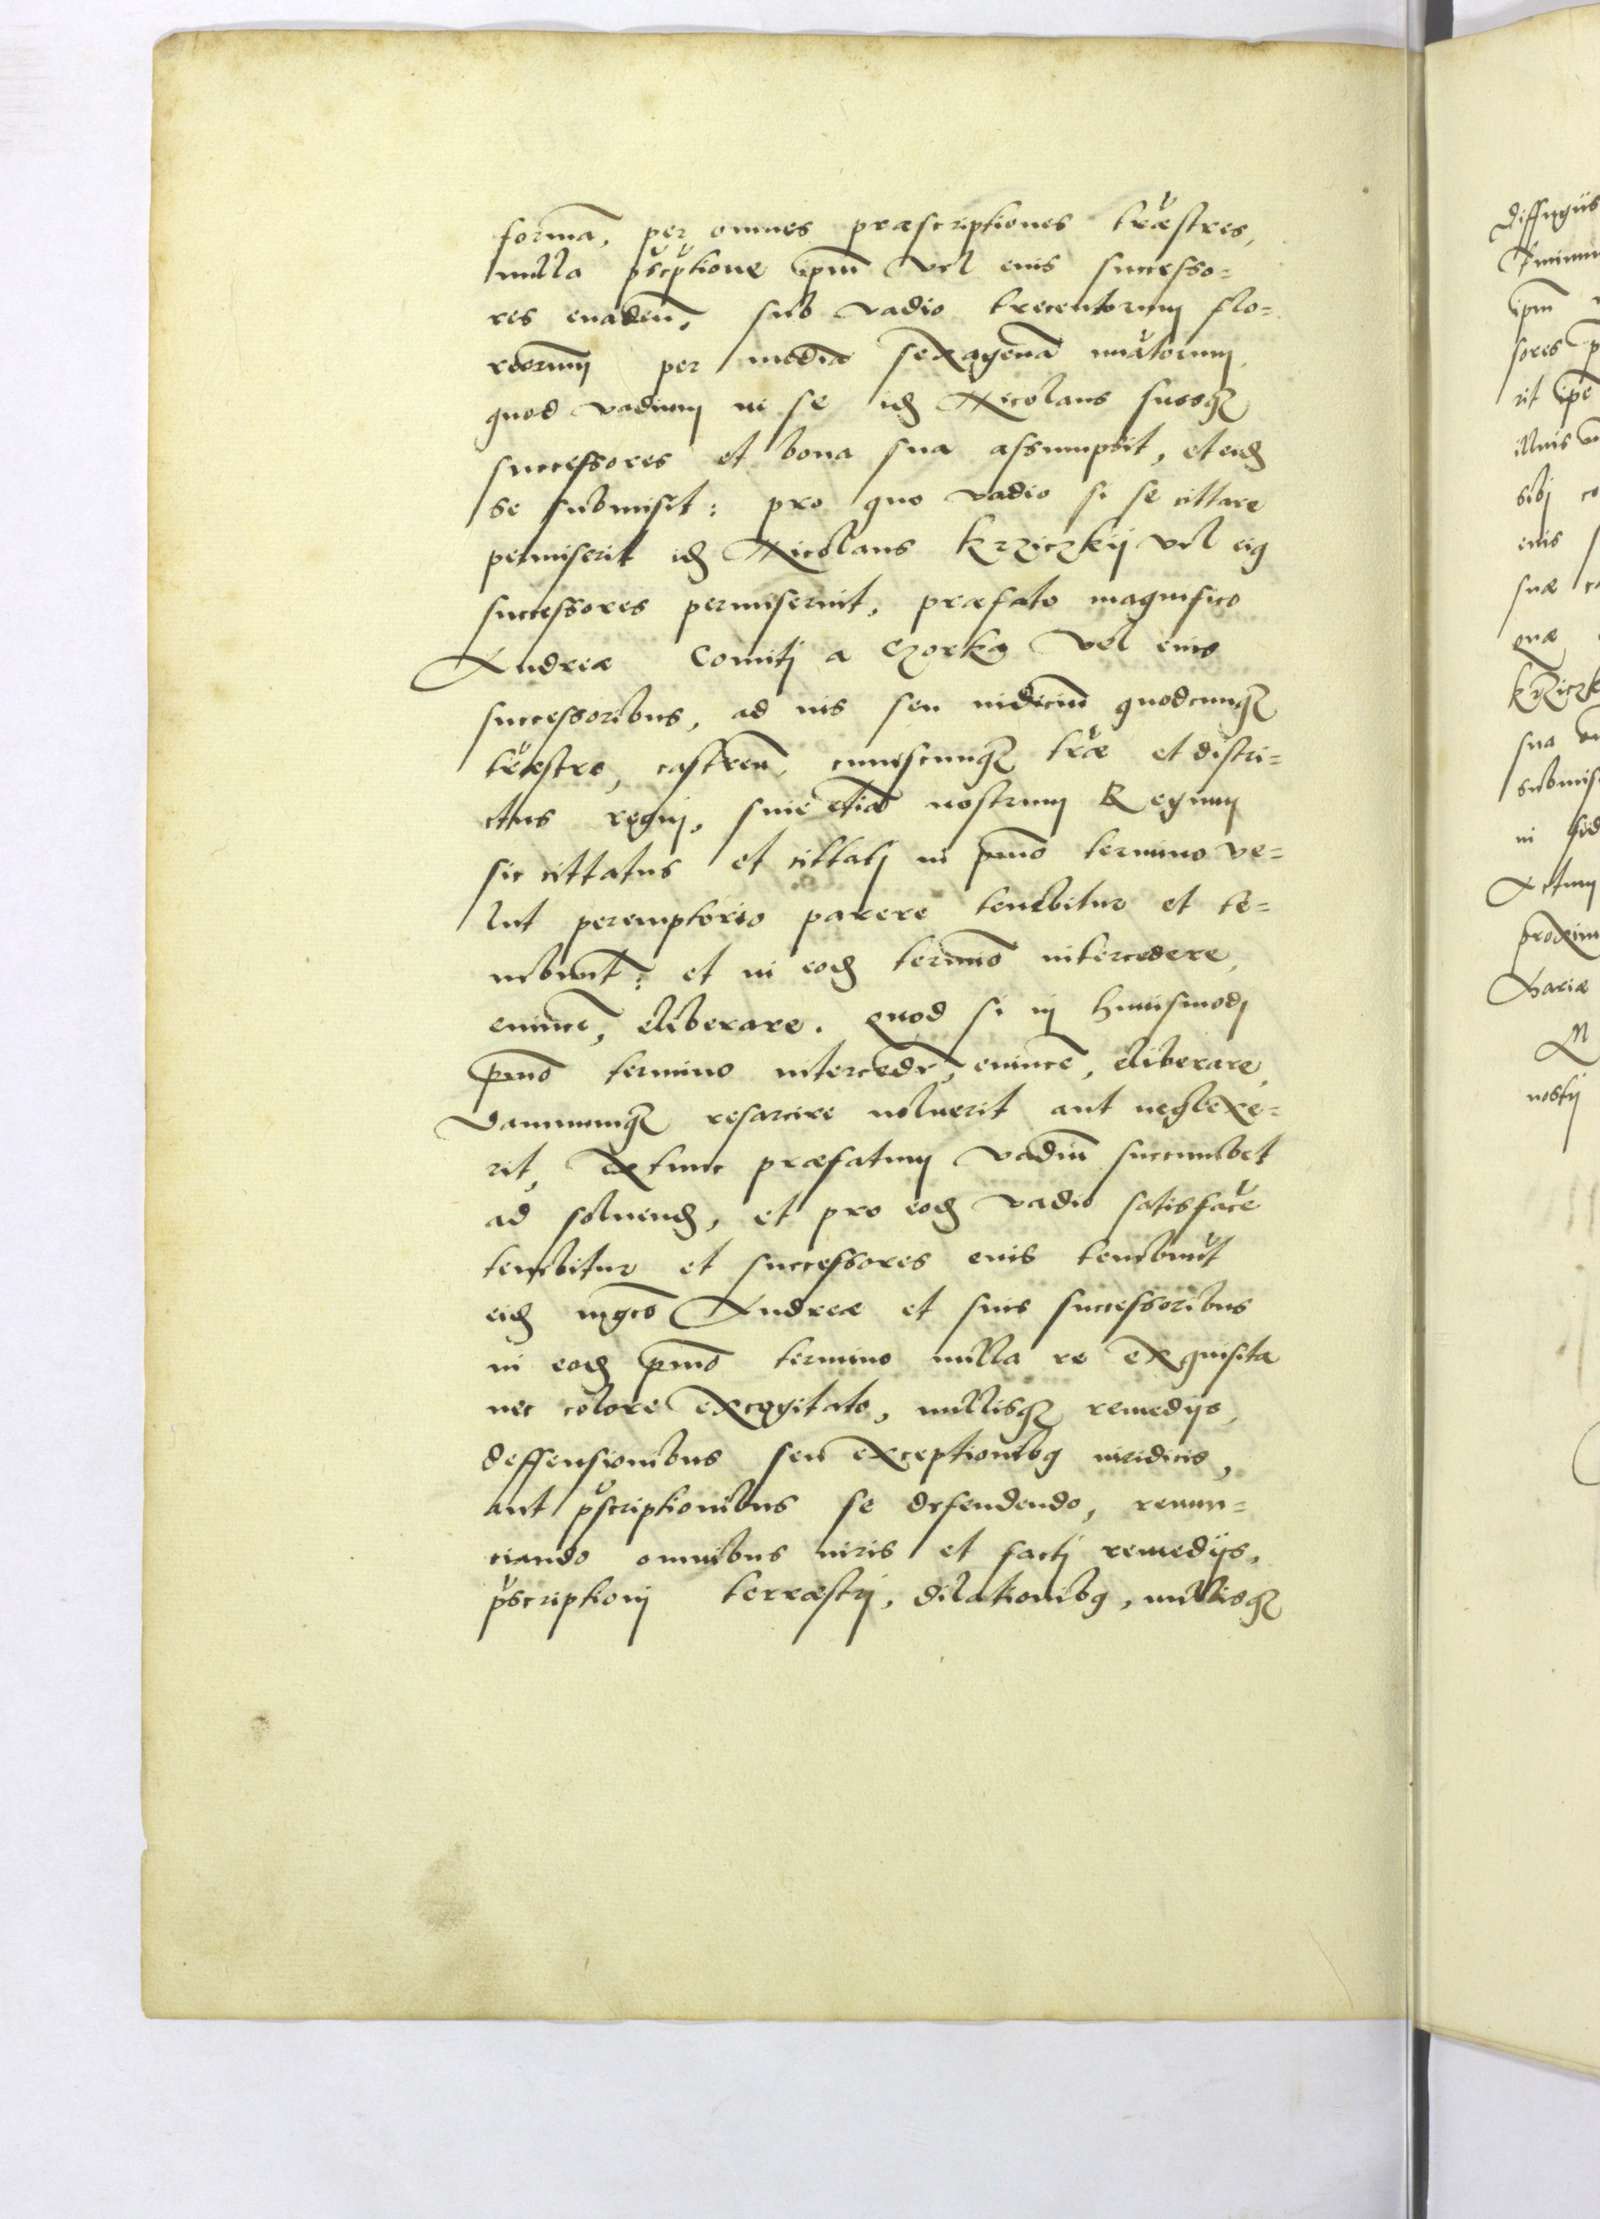 formā, per omnes præscriptiones træstres,
nulla pscptione ipm vel eius successo=
res euadeñ, sub vadio trecentorum flo=
renorum per mediā sexagenā nuātorum
quod vadium in se idem Nicolaus suosq
successores et bona sua assumpsit, et eidem
se submisit: pro quo vadio si se cittare
permiserit idem Nicolaus Krziczkij vel eig
successores permiserint, præfato magnifico
Andreæ Comitj a Gorka vel eius
successoribus, ad ius seu iudiciū quodcunq
træstre, castreñ, cuiuscunq træ et distri=
ctus regnj, siue etiā nostrum Regium
sic cittatus et cittatj in pmo termino ve=
lut peremptorio parere tenebitur et te=
nebunt: et in eodem termino intercedere,
euincē, eliberare. quod si in huiusmodj
pmo termino intercedē, euincē, eliberare,
damnumq resarcire noluerit aut neglexe=
rit, extunc præfatum vadiū succumbet
ad soluend, et pro eodem vadio satisface
tenebitur et successores eius tenebunt
eidem mgco Andreæ et suis successoribus
in eodem pmo termino nulla re exquisita
nec colore excogitato, nullisq remedijs,
deffensionibus seu exceptionibg iuridicis,
aut pscriptionibus se defendendo, renun=
ciando omnibus iuris et factj remedijs,
pscriptionj terræstrj, dilationibg, nullisq
diffugiis
ipm
sores
rit ipe
illius
sibj
eius
suæ
quæ
Krziczk
sua
submis
in
Actum
proxim
Mariæ
nostrj